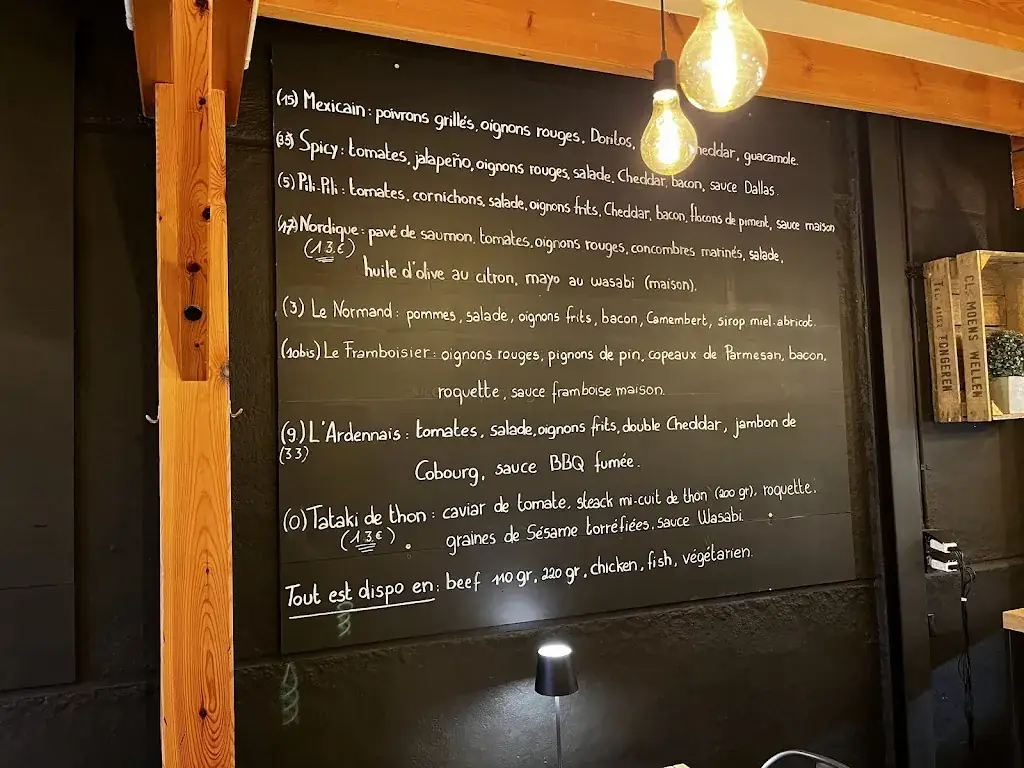 (15) Mexicain : poivrons grillés, oignons rouges, Doritos, heddar, guacamole.
Spicy : tomates, jalapeño, oignons rouges, salade, Cheddar, bacon, sauce Dallas.
(5) Pili-Pili : tomates, cornichons, salade, oignons frits, Cheddar, bacon, flocons de piment, sauce maison
(17) Nordique : pavé de saumon, tomates, oignons rouges, concombres marinés, salade,
(13€) huile d'olive au citron, mayo au wasabi (maison).
(3) Le Normand : pommes, salade, oignons frits, bacon, Camembert, sirop miel-abricot.
(10bis) Le Framboisier : oignons rouges, pignons de pin, copeaux de Parmesan, bacon,
roquette, sauce framboise maison.
(9.) L'Ardennais : tomates, salade, oignons frits, double Cheddar, jambon de
(33) Cobourg, sauce BBQ fumée.
(0) Tataki de thon : caviar de tomate, steack mi-cuit de thon (200 gr), roquette,
(13€) graines de Sésame torréfiées, sauce Wasabi.
Tout est dispo en : beef 110 gr, 220 gr, chicken, fish, végétarien.
CL. MOENS WELLEN
TONGEREN